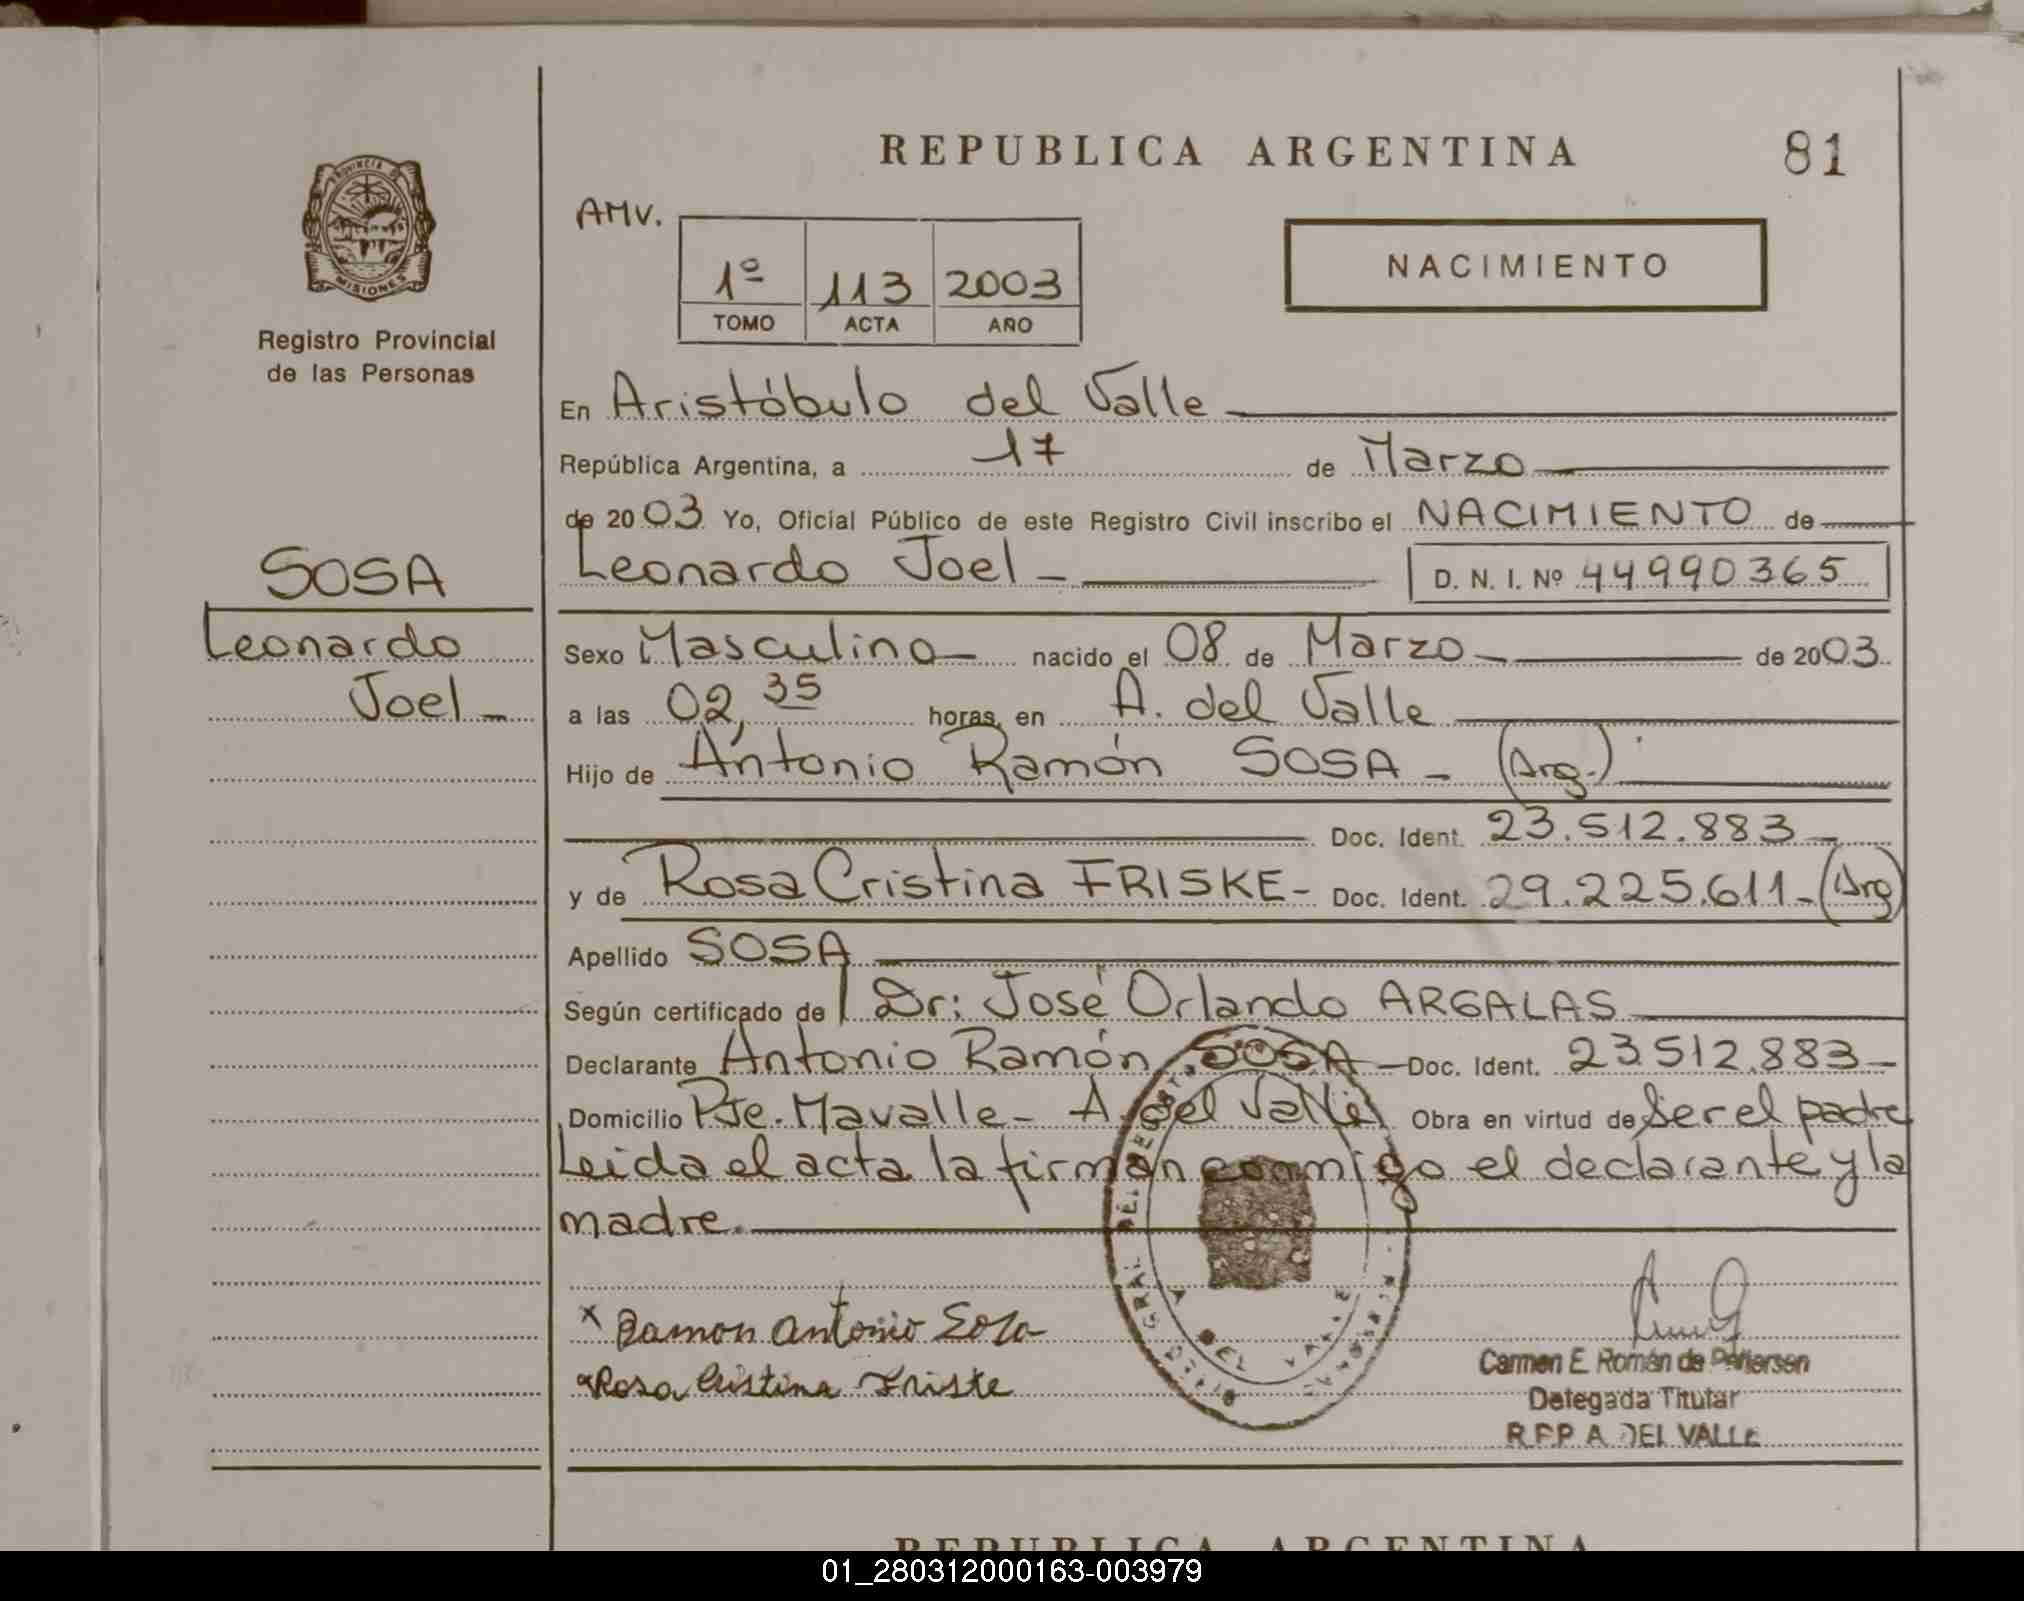 REPUBLICA ARGENTINA
81
PROVINCIA DE
MISIONES
Registro Provincial
de las Personas
AMV.
1º 113 2003
TOMO ACTA AÑO
NACIMIENTO
En Aristóbulo del Valle
República Argentina, a 17 de Marzo
de 2003 Yo, Oficial Público de este Registro Civil inscribo el NACIMIENTO de
Leonardo Joel - D. N. I. Nº 44990365
SOSA
Leonardo
Joel -
Sexo Masculino - nacido el 08 de Marzo - de 2003.
a las 02,35 horas, en A. del Valle
Hijo de Antonio Ramón SOSA - (Arg.)
Doc. Ident. 23.512.883 -
y de Rosa Cristina FRISKE - Doc. Ident. 29.225.611 - (Arg)
Apellido SOSA
Según certificado de Dr: José Orlando ARGALAS
Declarante Antonio Ramón SOSA - Doc. Ident. 23512.883 -
Domicilio Pje. Mavalle - A. del Valle Obra en virtud de Ser el padre
Leida el acta la firman conmigo el declarante y la
madre.
x Ramon antonio Sosa
Rosa Cristina Friske
A DEL VALLE
Carmen E. Román de
Delegada Titular
R.P.P A. DEL VALLE
REPUBLICA ARGENTINA
01_280312000163-003979